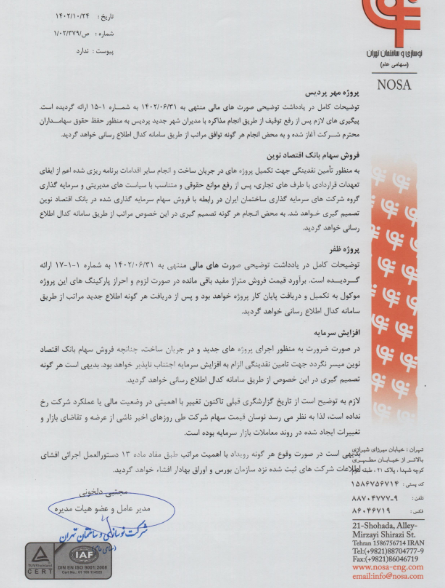 تاریخ : ۱۴۰۲/۱۰/۲۴
شماره : ص/۱/۰۲/۳۷۹
پیوست : ندارد
نوسازی و ساختمان تهران
(سهامی عام)
NOSA
پروژه مهر پردیس
توضیحات کامل در یادداشت توضیحی صورت های مالی منتهی به ۱۴۰۲/۰۶/۳۱ به شماره ۱-۱۵ ارائه گردیده است.
پیگیری های لازم پس از رفع توقیف از طریق انجام مذاکره با مدیران شهر جدید پردیس به منظور حفظ حقوق سهامداران
محترم شرکت آغاز شده و به محض انجام هر گونه توافق مراتب از طریق سامانه کدال اطلاع رسانی خواهد گردید.
فروش سهام بانک اقتصاد نوین
به منظور تأمین نقدینگی جهت تکمیل پروژه های در جریان ساخت و انجام سایر اقدامات برنامه ریزی شده اعم از ایفای
تعهدات قراردادی با طرف های تجاری، پس از رفع موانع حقوقی و متناسب با سیاست های مدیریتی و سرمایه گذاری
گروه شرکت های سرمایه گذاری ساختمان ایران در رابطه با فروش سهام سرمایه گذاری شده در بانک اقتصاد نوین
تصمیم گیری خواهد شد. به محض انجام هر گونه تصمیم گیری در این خصوص مراتب از طریق سامانه کدال اطلاع
رسانی خواهد گردید.
پروژه ظفر
توضیحات کامل در یادداشت توضیحی صورت های مالی منتهی به ۱۴۰۲/۰۶/۳۱ به شماره ۱-۱-۱۷ ارائه
گردیده است. برآورد قیمت فروش متراژ مفید باقی مانده در صورت لزوم و احراز پارکینگ های این پروژه
موکول به تکمیل و دریافت پایان کار پروژه خواهد بود و پس از دریافت هر گونه اطلاع جدید مراتب از طریق
سامانه کدال اطلاع رسانی خواهد گردید.
افزایش سرمایه
در صورت ضرورت به منظور اجرای پروژه های جدید و در جریان ساخت، چنانچه فروش سهام بانک اقتصاد
نوین میسر نگردد جهت تامین نقدینگی الزام به افزایش سرمایه اجتناب ناپذیر خواهد بود. بدیهی است هر گونه
تصمیم گیری در این خصوص از طریق سامانه کدال اطلاع رسانی خواهد گردید.
لازم به توضیح است از تاریخ گزارشگری قبلی تاکنون تغییر با اهمیتی در وضعیت مالی یا عملکرد شرکت رخ
نداده است، لذا به نظر می رسد نوسان قیمت سهام شرکت طی روزهای اخیر ناشی از عرضه و تقاضای بازار و
تغییرات ایجاد شده در روند معاملات بازار سرمایه بوده است.
بدیهی است در صورت وقوع هر گونه رویداد با اهمیت مراتب طبق مفاد ماده ۱۳ دستورالعمل اجرائی افشای
اطلاعات شرکت های ثبت شده نزد سازمان بورس و اوراق بهادار افشاء خواهد گردید.
مجتبی دلخونی
مدیر عامل و عضو هیات مدیره
شرکت نوسازی و ساختمان تهران
تهران : خیابان میرزای شیرازی
بالاتر از خیابان مطهری
کوچه شهدا ، پلاک ۲۱، طبقه
کد پستی : ۱۵۸۶۷۵۶۷۱۴
تلفن : ۸۸۷۰۴۷۷۷-۹
فکس : ۸۶۰۴۶۷۱۹
21-Shohada, Alley-
Mirzayi Shirazi St.
Tehran 1586756714 IRAN
Tel:(+9821)88704777-9
Fax:(+9821)86046719
www.nosa-eng.com
email:info@nosa.com
TÜV
CERT
IAF